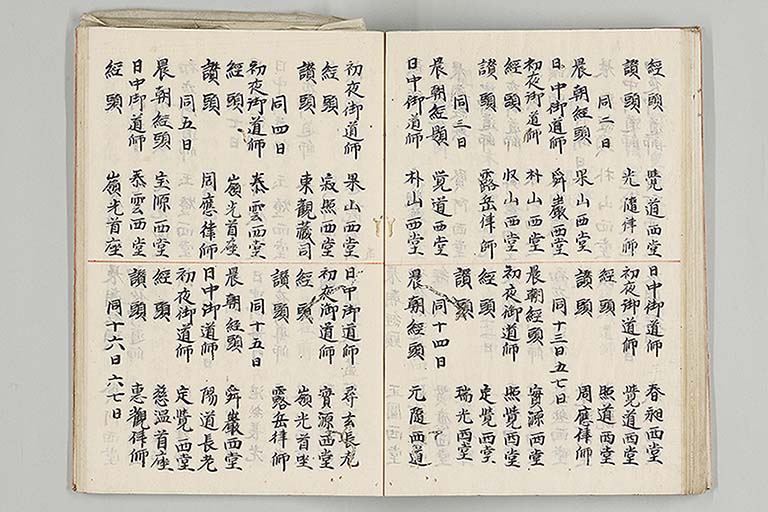 經頭 覺道西堂
讃頭 光隨律師
同二日
晨朝經頭 果山西堂
日中御道師 舜巖西堂
初夜御道師 朴山西堂
經頭 収山西堂
讃頭 露岳律師
同三日
晨朝經頭 覚道西堂
日中御道師 朴山西堂
日中御道師 春昶西堂
初夜御道師 覚道西堂
經頭 照道西堂
讃頭 周應律師
同十三日五七日
晨朝經頭 實源西堂
初夜御道師 照覚西堂
經頭 定覚西堂
讃頭 瑞光西堂
同十四日
晨朝經頭 元隨西道
初夜御道師 果山西堂
經頭 寂照西堂
讃頭 東觀蔵司
同四日
初夜御道師 泰雲西堂
經頭 嶺光首座
讃頭 同應律師
同五日
晨朝經頭 宝源西堂
日中御道師 泰雲西堂
經頭 嶺光首座
日中御道師 尋玄長老
初夜御道師 實源西堂
經頭 嶺光首座
讃頭 露岳律師
同十五日
晨朝經頭 舜巖西堂
日中御道師 陽道長老
初夜御道師 定覚西堂
經頭 慈温首座
讃頭 惠觀律師
同十六日六七日